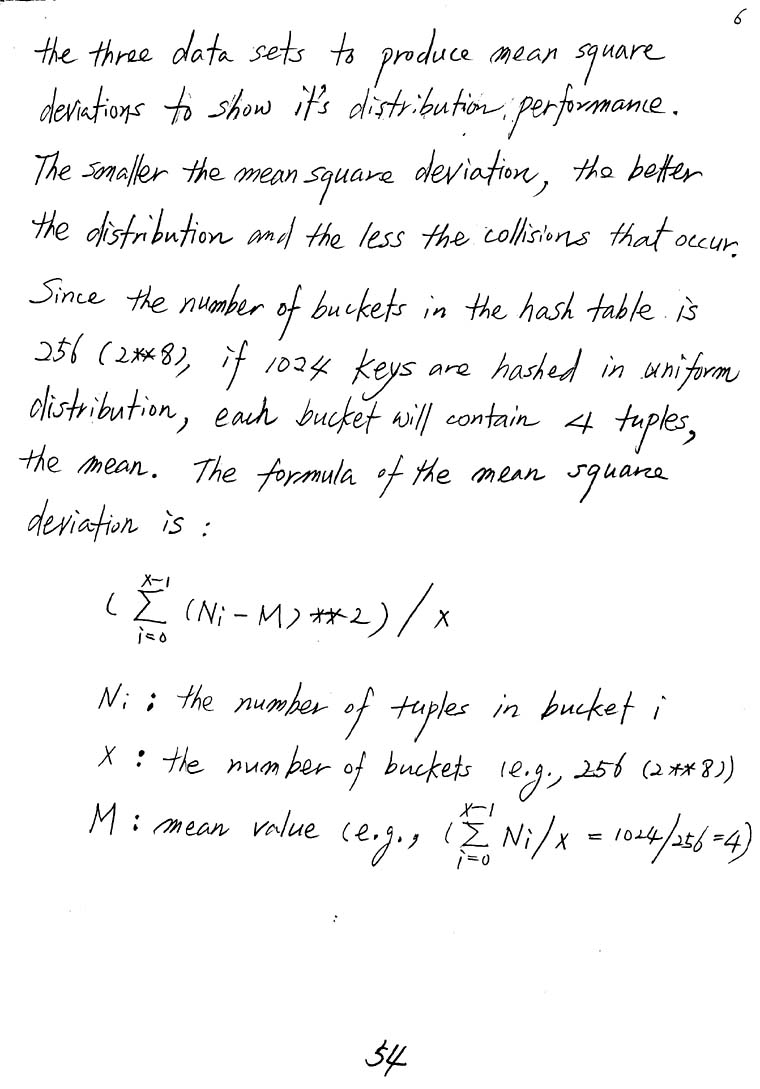 6
the three data sets to produce mean square
deviations to show it's distribution performance.
The smaller the mean square deviation, the better
the distribution and the less the collisions that occur.
Since the number of buckets in the hash table is
256 (2**8), if 1024 keys are hashed in uniform
distribution, each bucket will contain 4 tuples,
the mean. The formula of the mean square
deviation is :
x-1
( Σ (Ni - M) **2) / x
i=0
Ni : the number of tuples in bucket i
x : the number of buckets (e.g., 256 (2**8))
x-1
M : mean value (e.g., ( Σ Ni/x = 1024/256=4)
i=0
54